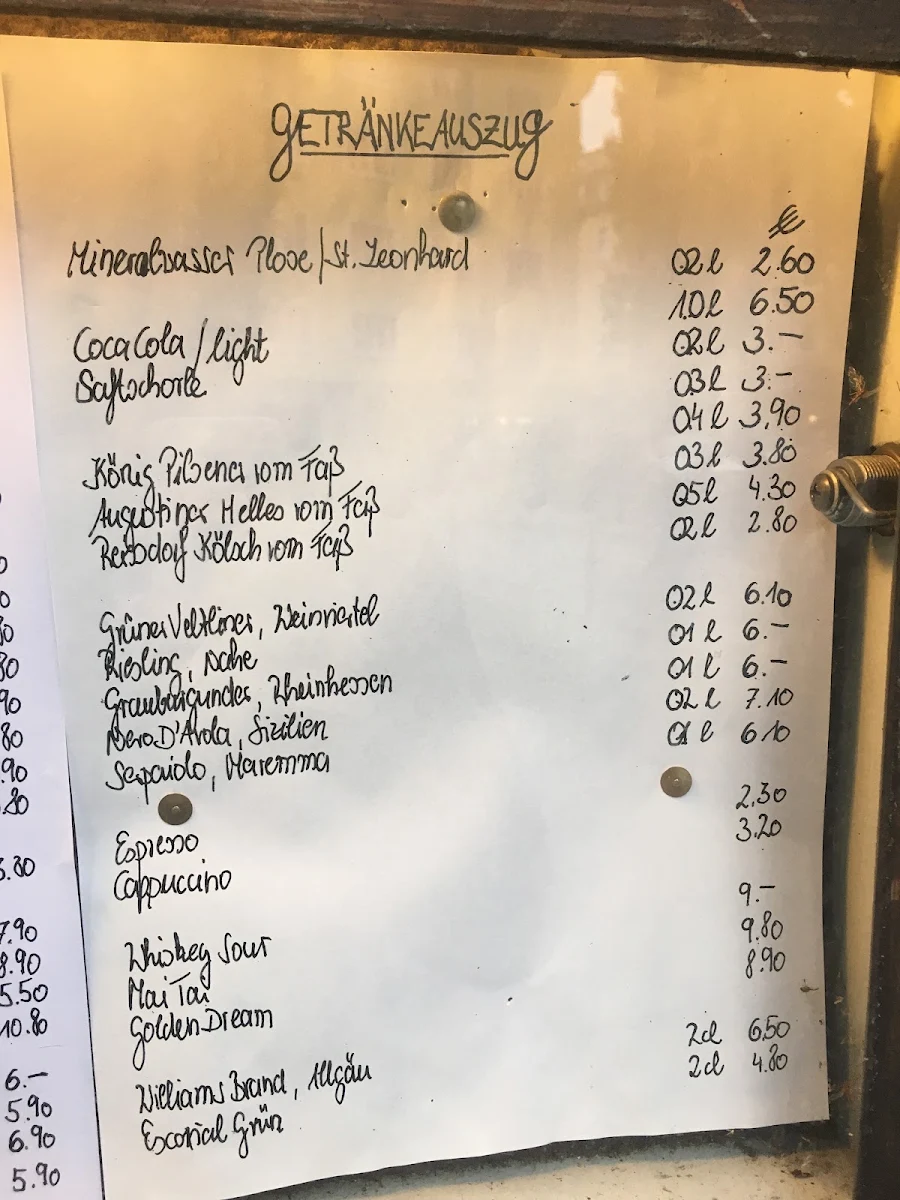 GETRÄNKEAUSZUG
€
Mineralwasser Plose/St. Leonhard 02l 2.60
1.0l 6.50
CocaCola/light 02l 3.–
Saftschorle 03l 3.–
04l 3,90
König Pilsener vom Faß 03l 3.80
Augustiner Helles vom Faß 05l 4.30
Reissdorf Kölsch vom Faß 02l 2.80
Grüner Veltliner, Weinviertel 02l 6.10
Riesling, Nahe 01l 6.–
Grauburgunder, Rheinhessen 01l 6.–
Nero D'Avola, Sizilien 02l 7.10
Serpaiolo, Maremma 01l 6.10
Espresso 2.30
Cappuccino 3.20
Whiskey Sour 9.–
Mai Tai 9.80
Golden Dream 8.90
Williams Brand, Allgäu 2cl 6.50
Escorial Grün 2cl 4.80
7.90
8.90
5.50
10.80
6.–
5.90
6.90
5.90